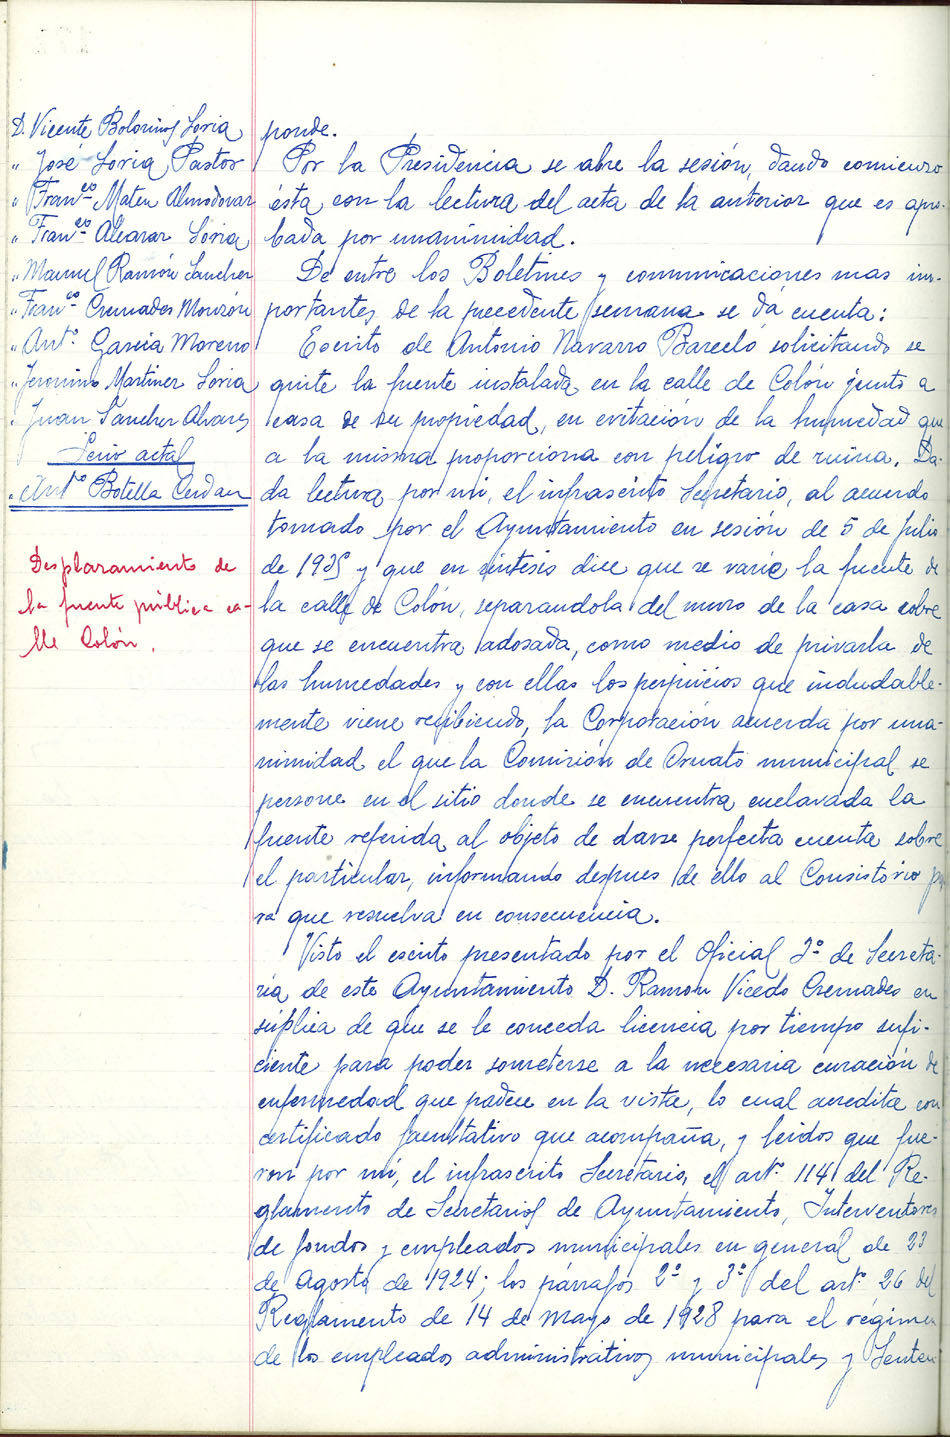 D. Vicente Bolorinos Soria
" José Soria Pastor
" Franco Mateu Almodovar
" Franco Alcaraz Soria
" Manuel Ramón Sanchez
" Franco Cremades Monzón
" Anto García Moreno
" Jeronimo Martinez Soria
" Juan Sanchez Alvarez
Serio actal
" Anto Botella Cerdan
Desplazamiento de
la fuente pública ca-
lle Colón.
ponde.
Por la Presidencia se abre la sesión, dando comienzo
ésta con la lectura del acta de la anterior que es apro-
bada por unanimidad.
De entre los Boletines y comunicaciones mas im-
portantes de la precedente semana se dá cuenta:
Escrito de Antonio Navarro Barceló solicitando se
quite la fuente instalada en la calle de Colón junto a
casa de su propiedad, en evitación de la humedad que
a la misma proporciona con peligro de ruina. Da-
da lectura por mi, el infrascrito Secretario, al acuerdo
tomado por el Ayuntamiento en sesión de 5 de Julio
de 1935 y que en síntesis dice que se varíe la fuente de
la calle de Colón, separandola del muro de la casa sobre
que se encuentra adosada, como medio de privarla de
las humedades y con ellas los perjuicios que indudable-
mente viene recibiendo, la Corporación acuerda por una-
nimidad el que la Comisión de Ornato municipal se
persone en el sitio donde se encuentra enclavada la
fuente referida al objeto de darse perfecta cuenta sobre
el particular, informando despues de ello al Consistório pa
ra que resuelva en consecuencia.
Visto el escrito presentado por el Oficial 3º de Secreta-
ría de este Ayuntamiento D. Ramon Vicedo Cremades en
súplica de que se le conceda licencia por tiempo sufi-
ciente para poder someterse a la necesaria curación de
enfermedad que padece en la vista, lo cual acredita con
certificado facultativo que acompaña, y leidos que fue-
ron por mi, el infrascrito Secretario, el art.º 114 del Re-
glamento de Secretarios de Ayuntamiento, Interventores
de fondos y empleados municipales en general de 23
de Agosto de 1924; los párrafos 2º y 3º del art.º 26 del
Reglamento de 14 de Mayo de 1928 para el régimen
de los empleados administrativos municipales y Senten